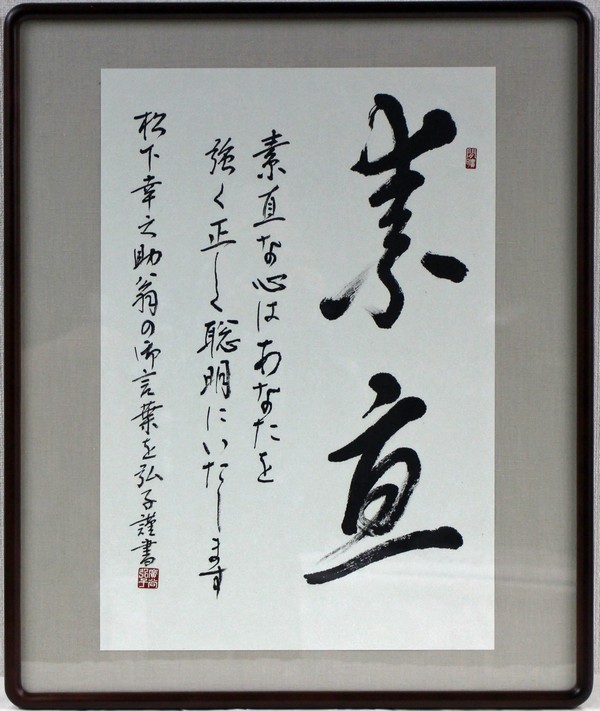 素直
素直な心はあなたを
強く正しく聡明にいたします
松下幸之助翁の御言葉を弘子謹書